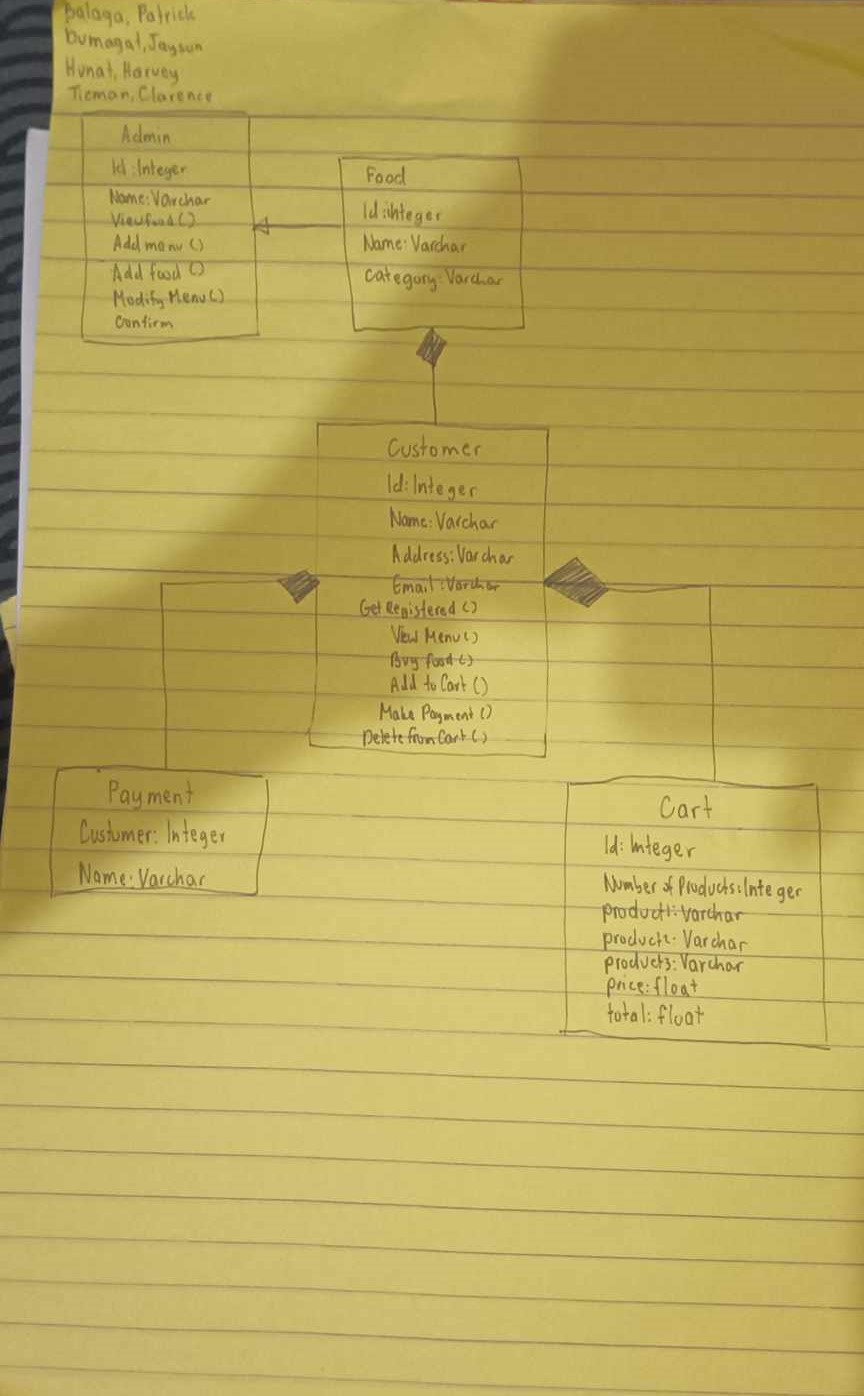 Balaga, Patrick
Dumagat, Jaysun
Hunat, Harvey
Ticman, Clarence
Admin
Id: Integer
Name: Varchar
View food ()
Add menu ()
Add food ()
Modify Menu ()
Confirm
Food
Id: integer
Name: Varchar
Category: Varchar
Customer
Id: Integer
Name: Varchar
Address: Varchar
Email: Varchar
Get Registered ()
View Menu ()
Buy food ()
Add to Cart ()
Make Payment ()
Delete from Cart ()
Payment
Custumer: Integer
Name: Varchar
Cart
Id: Integer
Number of Products: Integer
product1: Varchar
product2: Varchar
product3: Varchar
price: float
total: float